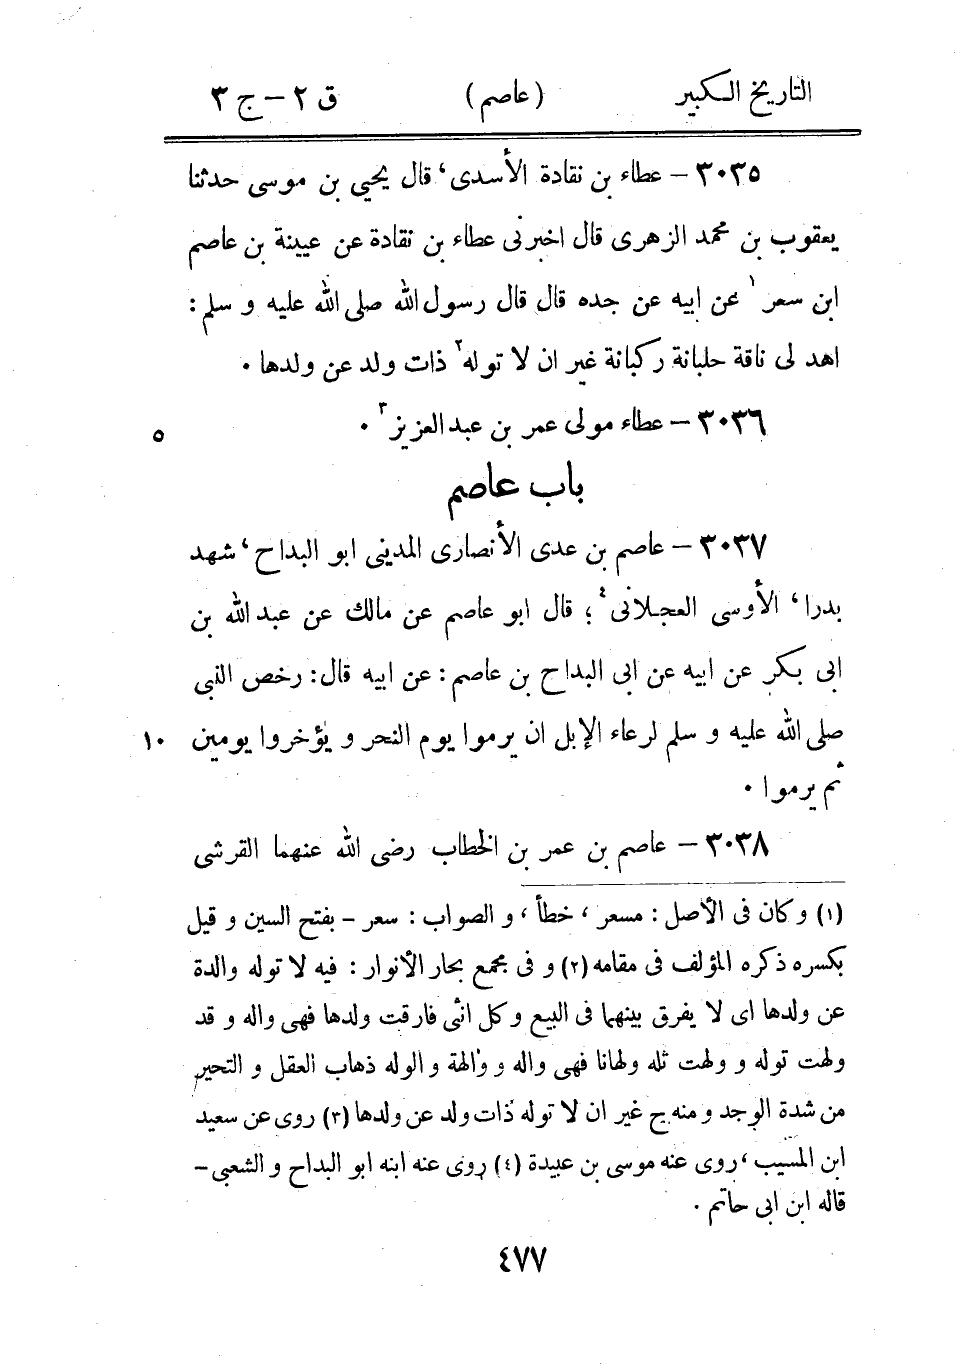 التاريخ الكبير (عاصم) ق ٢ - ج ٣
٣٠٣٥ - عطاء بن نقادة الأسدى، قال يحيي بن موسى حدثنا
يعقوب بن محمد الزهرى قال اخبرنى عطاء بن نقادة عن عيينة بن عاصم
ابن سعر١ عن ابيه عن جده قال قال رسول الله صلى الله عليه و سلم :
اهد لى ناقة حلبانة ركبانة غير ان لا توله٢ ذات ولد عن ولدها .
٣٠٣٦ - عطاء مولى عمر بن عبد العزيز٣ .
٥
باب عاصم
٣٠٣٧ - عاصم بن عدى الأنصارى المدينى ابو البداح، شهد
بدرا، الأوسى العجلانى٤ ؛ قال ابو عاصم عن مالك عن عبد الله بن
ابى بكر عن ابيه عن ابى البداح بن عاصم : عن ابيه قال : رخص النبى
صلى الله عليه و سلم لرعاء الإبل ان يرموا يوم النحر و يؤخروا يومين ١٠
ثم يرموا .
٣٠٣٨ - عاصم بن عمر بن الخطاب رضى الله عنهما القرشى
(١) و كان فى الأصل : مسعر، خطأ، و الصواب : سعر - بفتح السين و قيل
بكسره ذكره المؤلف فى مقامه (٢) و فى مجمع بحار الأنوار : فيه لا توله والدة
عن ولدها اى لا يفرق بينهما فى البيع و كل انثى فارقت ولدها فهى واله و قد
ولهت توله و ولهت تله ولهانا فهى واله و والهة و الوله ذهاب العقل و التحير
من شدة الوجد و منه ح غير ان لا توله ذات ولد عن ولدها (٣) روى عن سعيد
ابن المسيب، روى عنه موسى بن عبيدة (٤) روى عنه ابنه ابو البداح و الشعبى -
قاله ابن ابى حاتم .
٤٧٧